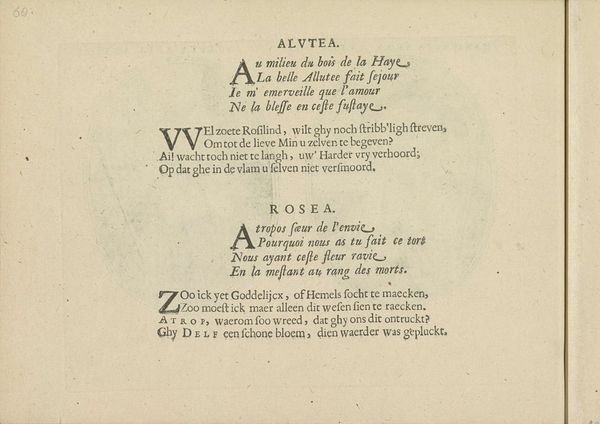 60.
ALVTEA.
Au milieu du bois de la Haye,
La belle Allutee fait ſejour
Ie m' emerveille que l'amour
Ne la bleſſe en ceſte fuſtaye.
VVEl zoete Roſilind, wilt ghy noch ſtribb'ligh ſtreven,
Om tot de lieve Min u zelven te begeven?
Ai! wacht toch niet te langh, uw' Harder vry verhoord;
Op dat ghe in de vlam u ſelven niet verſmoord.
ROSEA.
Atropos ſœur de l'envie,
Pourquoi nous as tu fait ce tort
Nous ayant ceſte fleur ravie,
En la meſtant au rang des morts.
ZOo ick yet Goddelijcx, of Hemels ſocht te maecken,
Zoo moeſt ick maer alleen dit weſen ſien te raecken.
ATROP, waerom ſoo wreed, dat ghy ons dit ontruckt?
Ghy DELF een ſchone bloem, dien waerder was gepluckt.